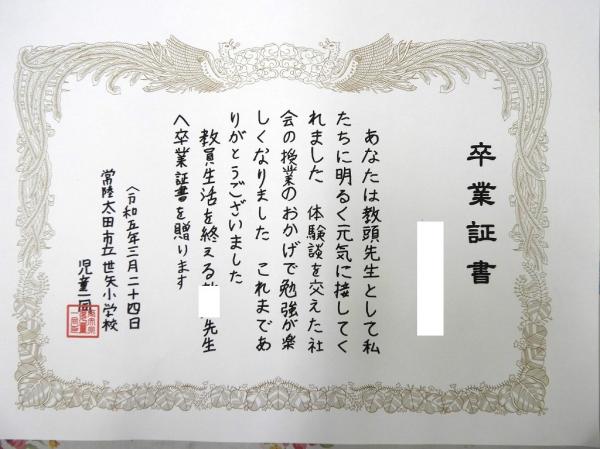 卒業証書
あなたは教頭先生として私
たちに明るく元気に接してく
れました 体験談を交えた社
会の授業のおかげで勉強が楽
しくなりました これまであ
りがとうございました
教員生活を終える 先生
へ卒業証書を贈ります
令和五年三月二十四日
常陸太田市立世矢小学校
児童一同